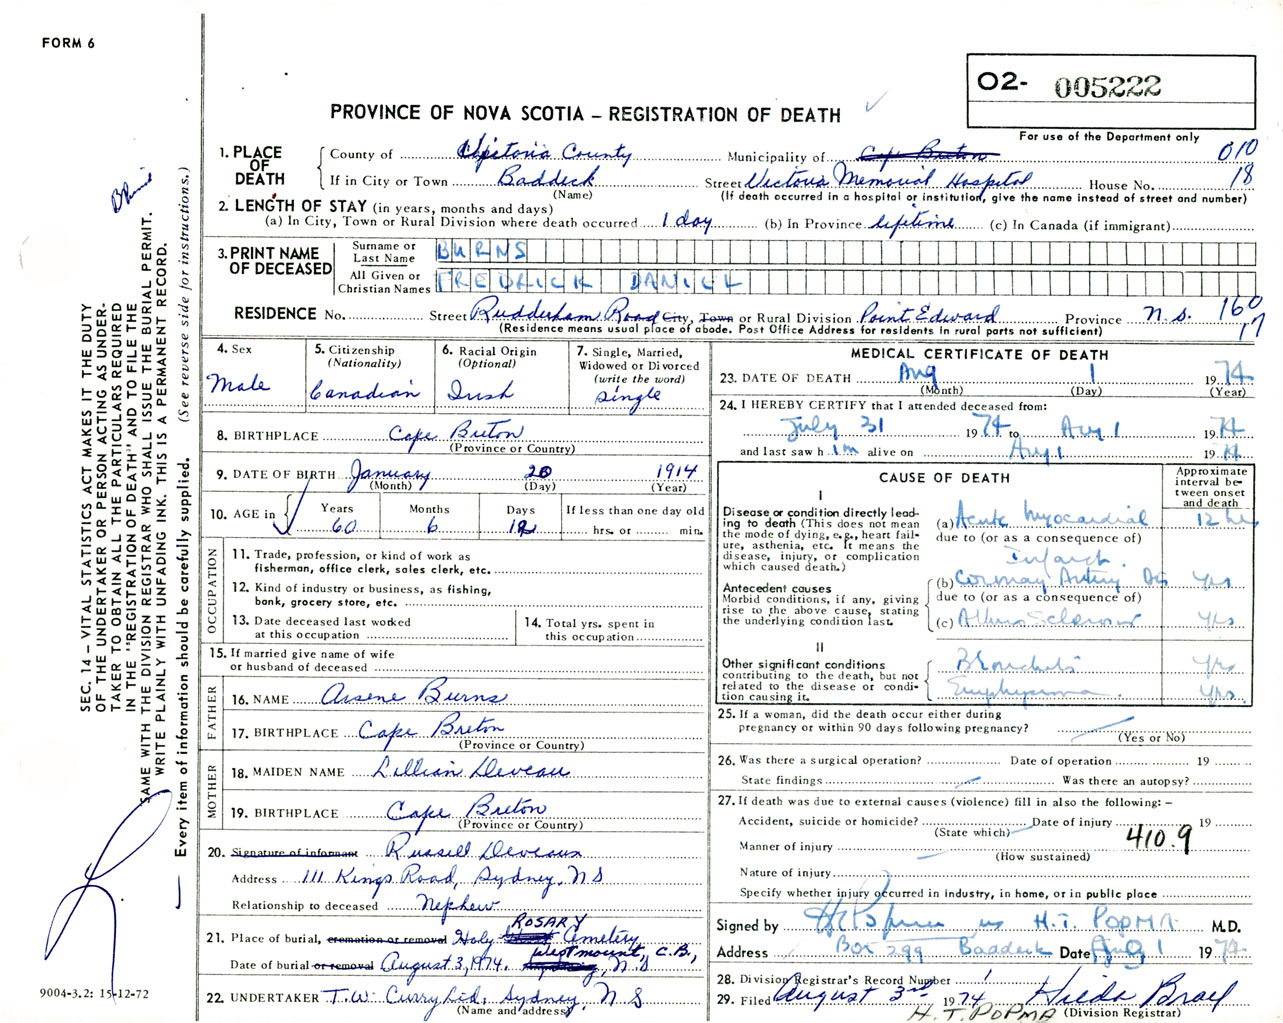 FORM 6
O2- 005222
PROVINCE OF NOVA SCOTIA – REGISTRATION OF DEATH
For use of the Department only
1. PLACE OF DEATH
County of Victoria County Municipality of Cape Breton 010
If in City or Town Baddeck Street Victoria Memorial Hospital House No. 18
(Name) (If death occurred in a hospital or institution, give the name instead of street and number)
2. LENGTH OF STAY (in years, months and days)
(a) In City, Town or Rural Division where death occurred 1 day (b) In Province lifetime (c) In Canada (if immigrant)
3. PRINT NAME OF DECEASED
Surname or Last Name BURNS
All Given or Christian Names FREDRICK DANIEL
RESIDENCE No. Street Rudderham Road City, Town or Rural Division Point Edward Province N.S. 160
(Residence means usual place of abode. Post Office Address for residents in rural parts not sufficient) 17
4. Sex
Male
5. Citizenship
(Nationality)
Canadian
6. Racial Origin
(Optional)
Irish
7. Single, Married,
Widowed or Divorced
(write the word)
Single
8. BIRTHPLACE Cape Breton
(Province or Country)
9. DATE OF BIRTH January 20 1914
(Month) (Day) (Year)
10. AGE in
Years Months Days If less than one day old
60 6 12 hrs. or min.
OCCUPATION
11. Trade, profession, or kind of work as
fisherman, office clerk, sales clerk, etc.
12. Kind of industry or business, as fishing,
bank, grocery store, etc.
13. Date deceased last worked
at this occupation
14. Total yrs. spent in
this occupation
15. If married give name of wife
or husband of deceased
FATHER
16. NAME Arsene Burns
17. BIRTHPLACE Cape Breton
(Province or Country)
MOTHER
18. MAIDEN NAME Lillian Deveau
19. BIRTHPLACE Cape Breton
(Province or Country)
20. Signature of informant Russell Deveaux
Address 111 Kings Road, Sydney, N S
Relationship to deceased Nephew
21. Place of burial, cremation or removal Holy ROSARY Cemetery
Date of burial or removal August 3, 1974. Westmount, C.B., N.S
22. UNDERTAKER T.W. Curry Ltd, Sydney, N S
(Name and address)
MEDICAL CERTIFICATE OF DEATH
23. DATE OF DEATH Aug 1 1974
(Month) (Day) (Year)
24. I HEREBY CERTIFY that I attended deceased from:
July 31 1974 to Aug 1 1974
and last saw him alive on Aug 1 1974
CAUSE OF DEATH
Approximate interval between onset and death
I
Disease or condition directly leading to death (This does not mean the mode of dying, e.g., heart failure, asthenia, etc. It means the disease, injury, or complication which caused death.)
(a) Acute Myocardial 12 hrs
due to (or as a consequence of)
Infarct.
Antecedent causes
Morbid conditions, if any, giving rise to the above cause, stating the underlying condition last.
(b) Coronary Artery Dis yrs
due to (or as a consequence of)
(c) yrs
II
Other significant conditions
contributing to the death, but not related to the disease or condition causing it.
Bronchitis yrs
Emphysema yrs.
25. If a woman, did the death occur either during
pregnancy or within 90 days following pregnancy?
(Yes or No)
26. Was there a surgical operation? Date of operation 19
State findings Was there an autopsy?
27. If death was due to external causes (violence) fill in also the following: –
Accident, suicide or homicide? Date of injury 19
(State which)
410.9
Manner of injury
(How sustained)
Nature of injury
Specify whether injury occurred in industry, in home, or in public place
Signed by H.T. POPMA M.D.
Address Box 299 Baddeck Date Aug 1 1974
28. Division Registrar's Record Number 1
29. Filed August 3rd 1974 Hilda Bray
H.T. POPMA (Division Registrar)
SEC. 14 – VITAL STATISTICS ACT MAKES IT THE DUTY
OF THE UNDERTAKER OR PERSON ACTING AS UNDER-
TAKER TO OBTAIN ALL THE PARTICULARS REQUIRED
IN THE "REGISTRATION OF DEATH" AND TO FILE THE
SAME WITH THE DIVISION REGISTRAR WHO SHALL ISSUE THE BURIAL PERMIT.
WRITE PLAINLY WITH UNFADING INK. THIS IS A PERMANENT RECORD.
Every item of information should be carefully supplied. (See reverse side for instructions.)
9004-3.2: 15-12-72